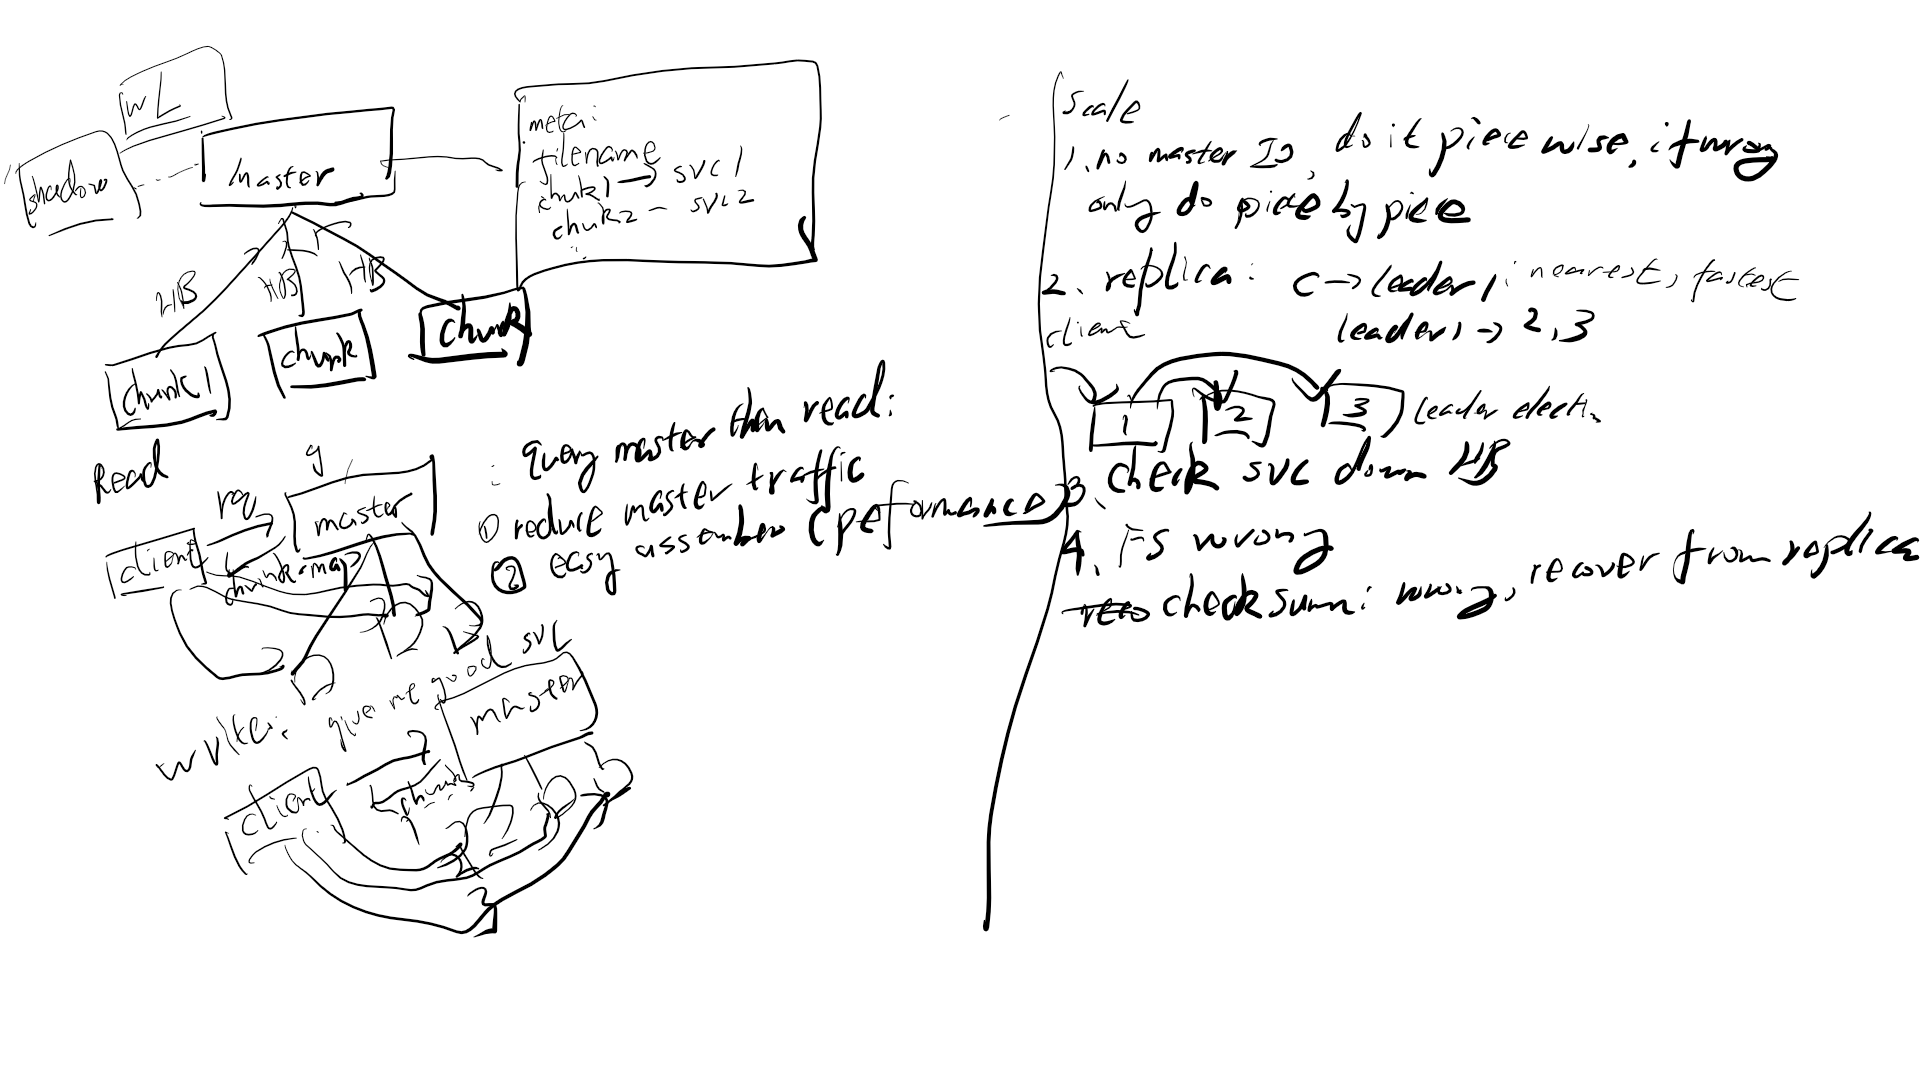 WL
shadow
Master
meta:
filename
chuk1 → svc1
chuk2 - svc2
HB
HB
HB
chunk1
chunk
chunk
Read
req
master
client
chunk-map
: query master then read:
① reduce master traffic
② easy assember (peformance)
write:
give me good svc
master
client
chunk
Scale
1. no master IO, do it piece wise, if wrong
only do piece by piece
2. replica: C → leader1: nearest, fastest
leader1 → 2,3
client
1
2
3
leader electi
3. check svc down HB
4. FS wrong
checksum: wrong, recover from replica